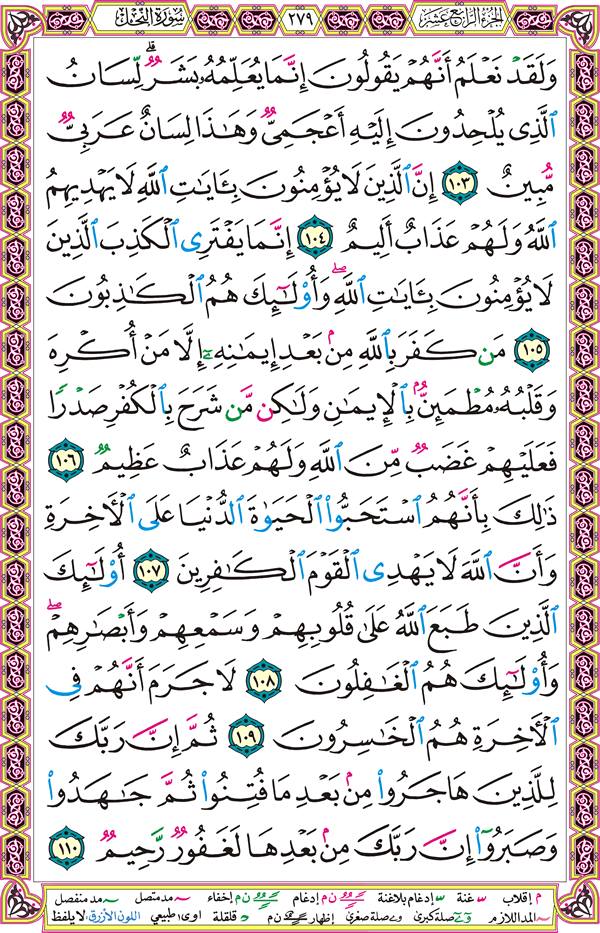 الجزء الرابع عشر ٢٧٩ سورة النحل
وَلَقَدْ نَعْلَمُ أَنَّهُمْ يَقُولُونَ إِنَّمَا يُعَلِّمُهُۥ بَشَرٌۭ ۗ لِّسَانُ
ٱلَّذِى يُلْحِدُونَ إِلَيْهِ أَعْجَمِىٌّۭ وَهَٰذَا لِسَانٌ عَرَبِىٌّۭ
مُّبِينٌ ١٠٣ إِنَّ ٱلَّذِينَ لَا يُؤْمِنُونَ بِـَٔايَٰتِ ٱللَّهِ لَا يَهْدِيهِمُ
ٱللَّهُ وَلَهُمْ عَذَابٌ أَلِيمٌ ١٠٤ إِنَّمَا يَفْتَرِى ٱلْكَذِبَ ٱلَّذِينَ
لَا يُؤْمِنُونَ بِـَٔايَٰتِ ٱللَّهِ ۖ وَأُو۟لَٰٓئِكَ هُمُ ٱلْكَٰذِبُونَ
١٠٥ مَن كَفَرَ بِٱللَّهِ مِنۢ بَعْدِ إِيمَٰنِهِۦٓ إِلَّا مَنْ أُكْرِهَ
وَقَلْبُهُۥ مُطْمَئِنٌّۢ بِٱلْإِيمَٰنِ وَلَٰكِن مَّن شَرَحَ بِٱلْكُفْرِ صَدْرًۭا
فَعَلَيْهِمْ غَضَبٌۭ مِّنَ ٱللَّهِ وَلَهُمْ عَذَابٌ عَظِيمٌۭ ١٠٦
ذَٰلِكَ بِأَنَّهُمُ ٱسْتَحَبُّوا۟ ٱلْحَيَوٰةَ ٱلدُّنْيَا عَلَى ٱلْـَٔاخِرَةِ
وَأَنَّ ٱللَّهَ لَا يَهْدِى ٱلْقَوْمَ ٱلْكَٰفِرِينَ ١٠٧ أُو۟لَٰٓئِكَ
ٱلَّذِينَ طَبَعَ ٱللَّهُ عَلَىٰ قُلُوبِهِمْ وَسَمْعِهِمْ وَأَبْصَٰرِهِمْ ۖ
وَأُو۟لَٰٓئِكَ هُمُ ٱلْغَٰفِلُونَ ١٠٨ لَا جَرَمَ أَنَّهُمْ فِى
ٱلْـَٔاخِرَةِ هُمُ ٱلْخَٰسِرُونَ ١٠٩ ثُمَّ إِنَّ رَبَّكَ
لِلَّذِينَ هَاجَرُوا۟ مِنۢ بَعْدِ مَا فُتِنُوا۟ ثُمَّ جَٰهَدُوا۟
وَصَبَرُوٓا۟ إِنَّ رَبَّكَ مِنۢ بَعْدِهَا لَغَفُورٌۭ رَّحِيمٌۭ ١١٠
م إقلاب غنة إدغام بلاغنة ن م إدغام ن م إخفاء مد متصل مد منفصل
المد اللازم صلة كبرى صلة صغرى إظهار ن م قلقلة اوى طبيعي اللون الأزرق: لا يلفظ